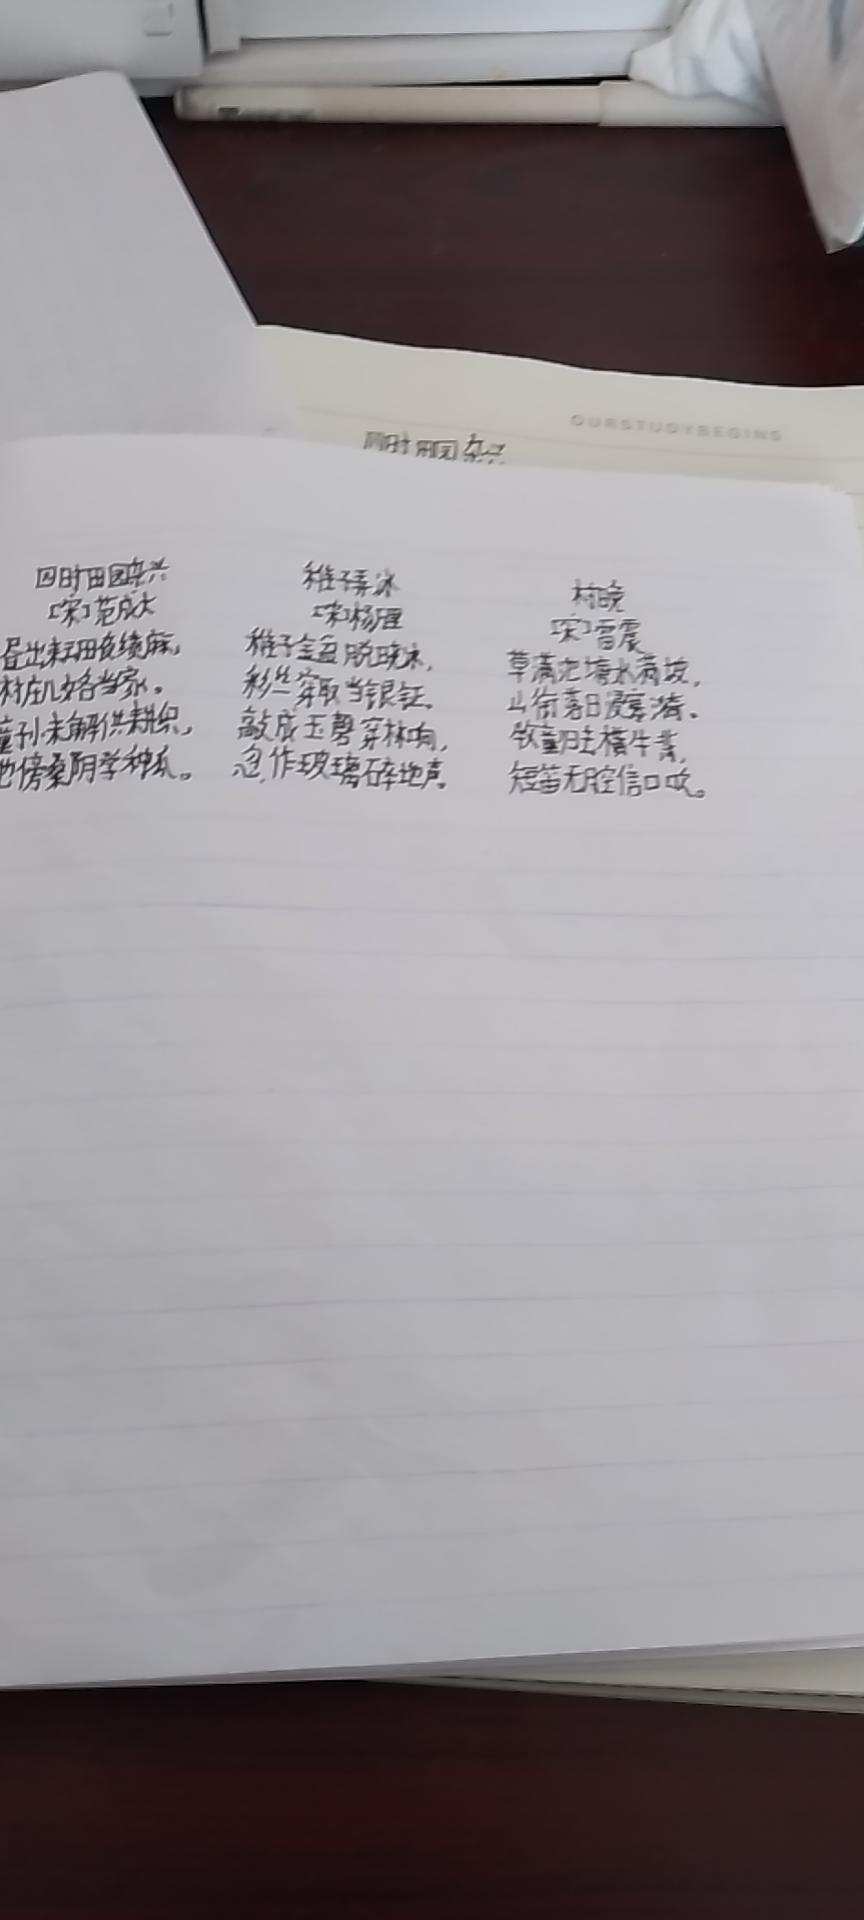 OURSTUDYBEGINS
四时田园杂兴
四时田园杂兴
[宋]范成大
昼出耘田夜绩麻，
村庄儿女各当家。
童孙未解供耕织，
也傍桑阴学种瓜。
稚子弄冰
[宋]杨万里
稚子金盆脱晓冰，
彩丝穿取当银钲。
敲成玉磬穿林响，
忽作玻璃碎地声。
村晚
[宋]雷震
草满池塘水满坡，
山衔落日浸寒漪。
牧童归去横牛背，
短笛无腔信口吹。